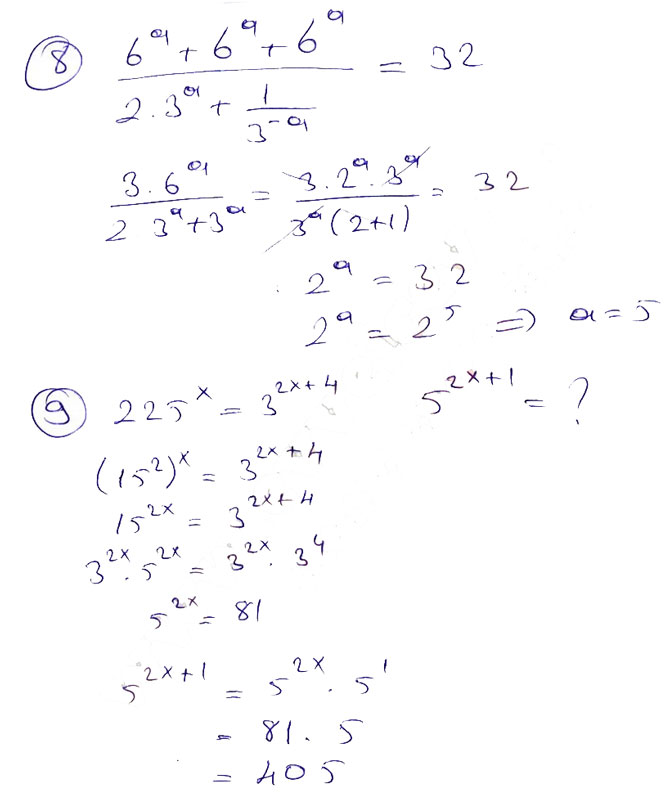 8) (6^a + 6^a + 6^a) / (2 . 3^a + 1/3^-a) = 32
(3 . 6^a) / (2 3^a + 3^a) = (3 . 2^a . 3^a) / (3^a (2+1)) = 32
2^a = 32
2^a = 2^5 => a = 5
9) 225^x = 3^(2x+4) 5^(2x+1) = ?
(15^2)^x = 3^(2x+4)
15^2x = 3^(2x+4)
3^2x . 5^2x = 3^2x . 3^4
5^2x = 81
5^(2x+1) = 5^2x . 5^1
= 81 . 5
= 405